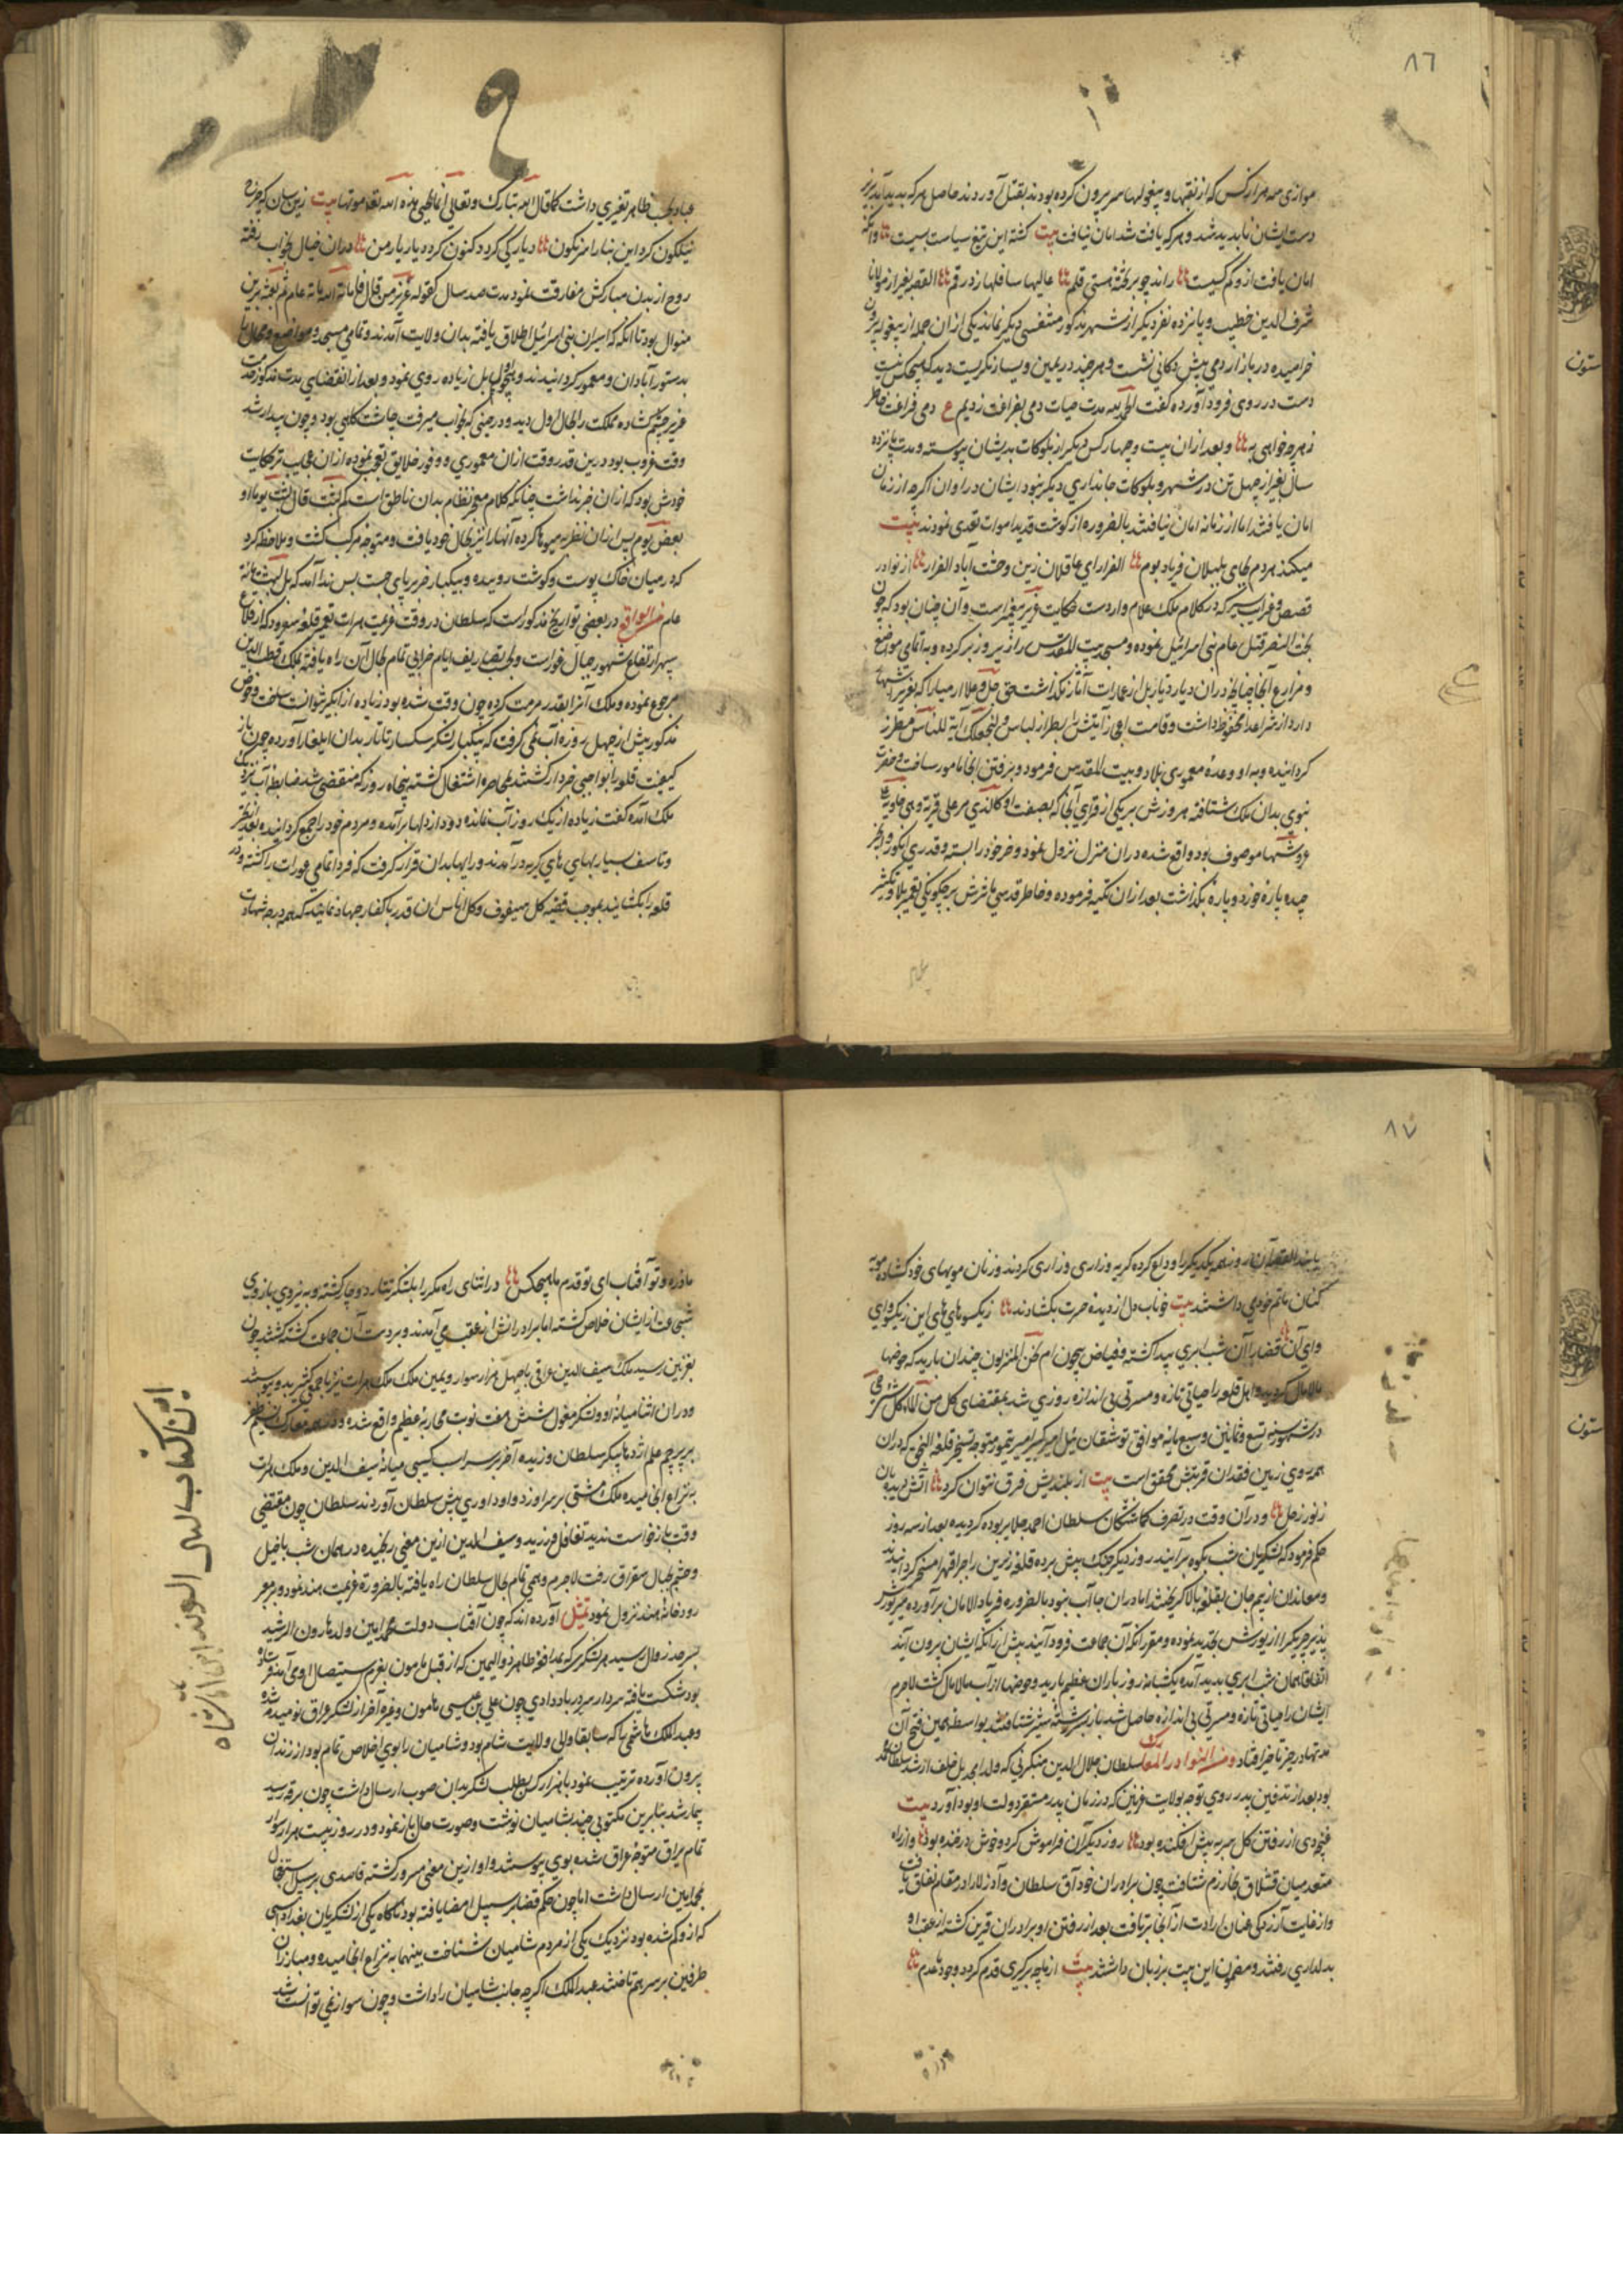 ٨٦
موازی سه هزار کس که از نقبها و بیغولها سر بیرون کرده بودند بقتل آوردند حاصل هر که پدید آمد بزیر
دست ایشان ناپدید شد و هر که یافت شد امان نیافت بیت کشته این تیغ سیاست بسیست وانکه
امان یافت ازو کم کسیست راند چو بر تخته هستی قلم عالیها سافلها زد رقم القصه بغیر از مولانا
شرف الدین خطیب و پانزده نفر دیگر از شهر مذکور متنفسی دیگر نماند یکی از ان جمله از بیغوله بیرون
خرامیده در بازار دمی پیش دکانی نشست و هر چند در یمین و یسار نگریست دید که هیچکس نیست
دست در روی فرود آورده گفت الحمد لله مدت حیات دمی بفراغت زدیم ع دمی فراغت خاطر
ز هر چه خواهی به و بعد از ان بیست و چهار کس دیگر از بلوکات بدیشان پیوسته و مدت پانزده
سال بغیر از چهل تن در شهر و بلوکات جانداری دیگر نبود ایشان در اوان اگر چه از زمان
امان یافتند اما از زمانه امان نیافتند بالضروره از گوشت قدید اموات تغدی نمودند بیت
میکند مردم بجای بلبلان فریاد بوم الفرار ای عاقلان زین وحشت آباد الفرار از نوادر
قصص و غرایب سیر که در کلام ملک علام وارد است حکایت عزیر پیغمبر است و آن چنان بود که چون
بخت النصر قتل عام بنی اسرائیل نموده و مسجد بیت المقدس را زیر و زبر کرده و به اتمامی مواضع
و مزارع آنجا چنانچه در ان دیار دیار بل از عمارات آثار نگذاشت حق جل و علا ارمیا را که بعزیر اشتهار
دارد از شر اعدا محفوظ داشت و قامت
گردانیده و به او وعده معموری بلاد و بیت المقدس فرمود و برفتن آنجا مامور ساخت و حضرت
نبوی بدان ملک شتافته هر روزش بر یکی از قرای آنجا که بصفت او کالذی مر علی قریة و هی خاویة علی
عروشها موصوف بود واقع شده در ان منزل نزول نمود و خر خود را بسته و قدری انگور و انجیر
چیده پاره خورد و پاره بگذاشت بعد از ان تکیه فرموده و خاطر قدسی
عباد بحسب ظاهر تغیری داشت کما قال الله تبارک و تعالی انی یحیی هذه الله بعد موتها بیت زین سان که چرخ
نیلگون کرد این بناها را نگون دیار کی گردد کنون گرد دیار یار من در ان خیال بخواب رفته
روح از بدن مبارکش مفارقت نمود مدت صد سال کقوله عز من قال فاماته الله مائة عام ثم بعثه برین
منوال بود تا انکه اسیران بنی اسرائیل اطلاق یافته بدان ولایت آمدند و تمامی مسجد و مواضع و محال را
بدستور آبادان و معمور گردانیدند و بحول بل زیاده روی نمود و بعد از انقضای مدت مذکور حضرت
عزیر چشم گشاده مملکت را بحال اول دید و در حینی که بخواب میرفت چاشتگاهی بود و چون بیدار شد
وقت غروب بود درین قدر وقت از ان معموری و وفور خلایق تعجب نموده از ان عجایب تر حکایت
خودش بود که از ان خبر نداشت چنانکه کلام معجز نظام بدان ناطق است کم لبثت قال لبثت یوما او
بعض یوم پس از ان نظر به میوها کرده آنها را نیز بحال خود یافت و متوجه مرکب گشت و ملاحظه کرد
که در میان خاک پوست و گوشت روییده و بیکبار خر بر پای جست پس ندا آمد که بل لبثت مائة
عام من الوقایع در بعضی تواریخ مذکور است که سلطان در وقت عزیمت هرات
سپهر ارتفاع مشهور جبال غور است و بحسب تصاریف ایام خرابی تمام بحال آن راه یافته بملک قطب الدین
رجوع نموده و ملک آنرا بقدر مرمت کرده چون وقت شده بود زیاده از آبگیر نتوانست ساخت و حوض
مذکور بیش از چهل روزه آب نمی گرفت که بیکبار لشکر سکسار تاتار بدان ایلغار آورده چون باز
کیفیت قلعه را بواجبی خبردار گشتند بمحاصره اشتغال گشته پنجاه روز که منقضی شد ضابط آب نزد
ملک آمده گفت زیاده از یک روز آب نمانده دود از دلها برآمده و مردم خود را جمع گردانیده بعد از تحیر
و تاسف بسیار بهایهای گریه درآمدند و رایها بدان قرار گرفت که فردا تمامی عورات را کشته و در
قلعه را بگشایند بموجب قضیه کل سیوف و کل اناس ان قدر با کفار جهاد نمایند که همه درجه شهادت
٨٧
یابند القصه آن روز همه یکدیگر را وداع کرده گریه و زاری و زاری کردند و زنان مویهای خود گشاده مویه
کنان ماتم خودی داشتند بیت خوناب دل از دیده حسرت بگشادند زیکسو هایهای این زیکسو وای
وای آن قضا را آن شب ابری پیدا گشته و فیاض بیچون ام نحن المنزلون چندان بارید که حوضها
مالامال گردید و اهل قلعه را حیاتی تازه و مسرتی بی اندازه روزی شد بمقتضای
در شهور سنه تسع و ثمانین و سبعمائه موافق توشقان ئیل امیر کبیر امیر تیمور متوجه تسخیر قلعه النجق که در ان
همه روی زمین فقدان قرینش محقق است بیت از بلندیش فرق نتوان کرد آتش دیده بان
ز نور زحل و در آن وقت در تصرف گماشتگان سلطان احمد جلایر بوده گردیده بعد از سه روز
حکم فرمود که لشکریان شب بکوه برآیند روز دیگر جنگ پیش برده قلعه زیرین را جبرا قهرا مسخر گردانیدند
و معاندان از بیم جان بقلعه بالا گریختند اما در ان جا آب نبود بالضروره فریاد الامان برآورده
پذیر چریک را از یورش تهدید نموده و مقرر آنکه آن جماعت فرود آیند پیش از آنکه ایشان برون آیند
اتفاقا همان شب ابری پدید آمده یکشبانه روز باران عظیم بارید و حوضها از آب مالامال گشت لاجرم
ایشان را حیاتی تازه و مسرتی بی اندازه حاصل شد باز بسر رشته ستیز شتافتند بواسطه همین فتح آن
مدتها در حیز تاخیر افتاد و من النوادر المعارک سلطان جلال الدین منکبرنی که ولد امجد بل خلف ارشد سلطان محمد
بود بعد از تدفین پدر روی توجه بولایت غزنین که در زمان پدر مستقر دولت او بود آورد بیت
غنچه دی از رفتن گل سر به پیش افکنده بود روز دیگر آن فراموش کرد و خوش در خنده بود و از راه
متعدد میان قشلاق بخوارزم شتافت چون برادران خود آق سلطان و آذرلار را در مقام نفاق یافت
و از غایت آزردگی عنان ارادت از آنجا برتافت بعد از رفتن او برادران قرین گشته از عقب او
بدلداری رفتند و مضمون این بیت بر زبان داشتند بیت از ما چه برگیری قدم گرد وجود ما عدم
ما ذره و تو آفتاب ای تو قدم ما هیچکس در اثنای راه مکررا بلشکر تتار دوچار گشته و به نیروی بازوی
شجاعت از ایشان خلاص گشته اما برادرانش از عقب می آمدند و بر دست آن جماعت کشته گشتند چون
بغزنین رسید ملک سیف الدین عراقی با چهل هزار سوار و یمین ملک ملک هرات نیز با جمعی کثیر بدو پیوستند
و در ان اثنا میانه او و لشکر مغول شش هفت نوبت محاربه عظیم واقع شده و در همه معارک نسیم ظفر
بر پرچم علم اژدها پیکر سلطان وزیده آخر بر سر اسب کسیبی میانه سیف الدین و ملک هرات
به نزاع انجامیده ملک مشتی بر سر او زد و او داوری پیش سلطان آوردند سلطان چون مقتضی
وقت بازخواست ندید تغافل ورزید و سیف الدین ازین معنی رنجیده در همان شب با خیل
و حشم بجبال سقراق رفت لاجرم وهنی تمام بحال سلطان راه یافته بالضرورة عزیمت هند نمود و بر معبر
رودخانه هند نزول نمود تمثیل آورده اند که چون آفتاب دولت محمد امین ولد هارون الرشید
بسرحد زوال رسید هر لشکر که بمدافعه طاهر ذو الیمین که از قبل مامون بعزم استیصال او می آمد فرستاده
بود شکست یافته سردار سر درباد دادی چون علی بن عیسی ماهون و غیره آخر از لشکر عراق نومید شده
و عبد الملک هاشمی را که سابقا والی ولایت شام بود و شامیان را بوی اخلاص تمام بود از زندان
بیرون آورده تربیت نمود با هزار کس بطلب لشکر بدان صوب ارسال داشت چون برقه رسید
بیمار شد بنابرین مکتوبی چند بشامیان نوشت و صورت حال باز نمود و در روز بیست هزار سوار
تمام یراق متوجه عراق شده بوی پیوستند و او ازین معنی مسرور گشته قاصدی بر سبیل استعجال
بمحمد امین ارسال داشت اما چون حکم قضا بر سبیل امضا یافته بود ناگاه یکی از لشکریان بغداد اسبی
که ازو گم شده بود نزدیک یکی از مردم شامیان شناخت بینهما به نزاع انجامیده و مبارزان
طرفین بر سر هم تاختند عبد الملک اگر چه جانب شامیان را داشت و چون سوار نمی توانست شد
ستون
ستون